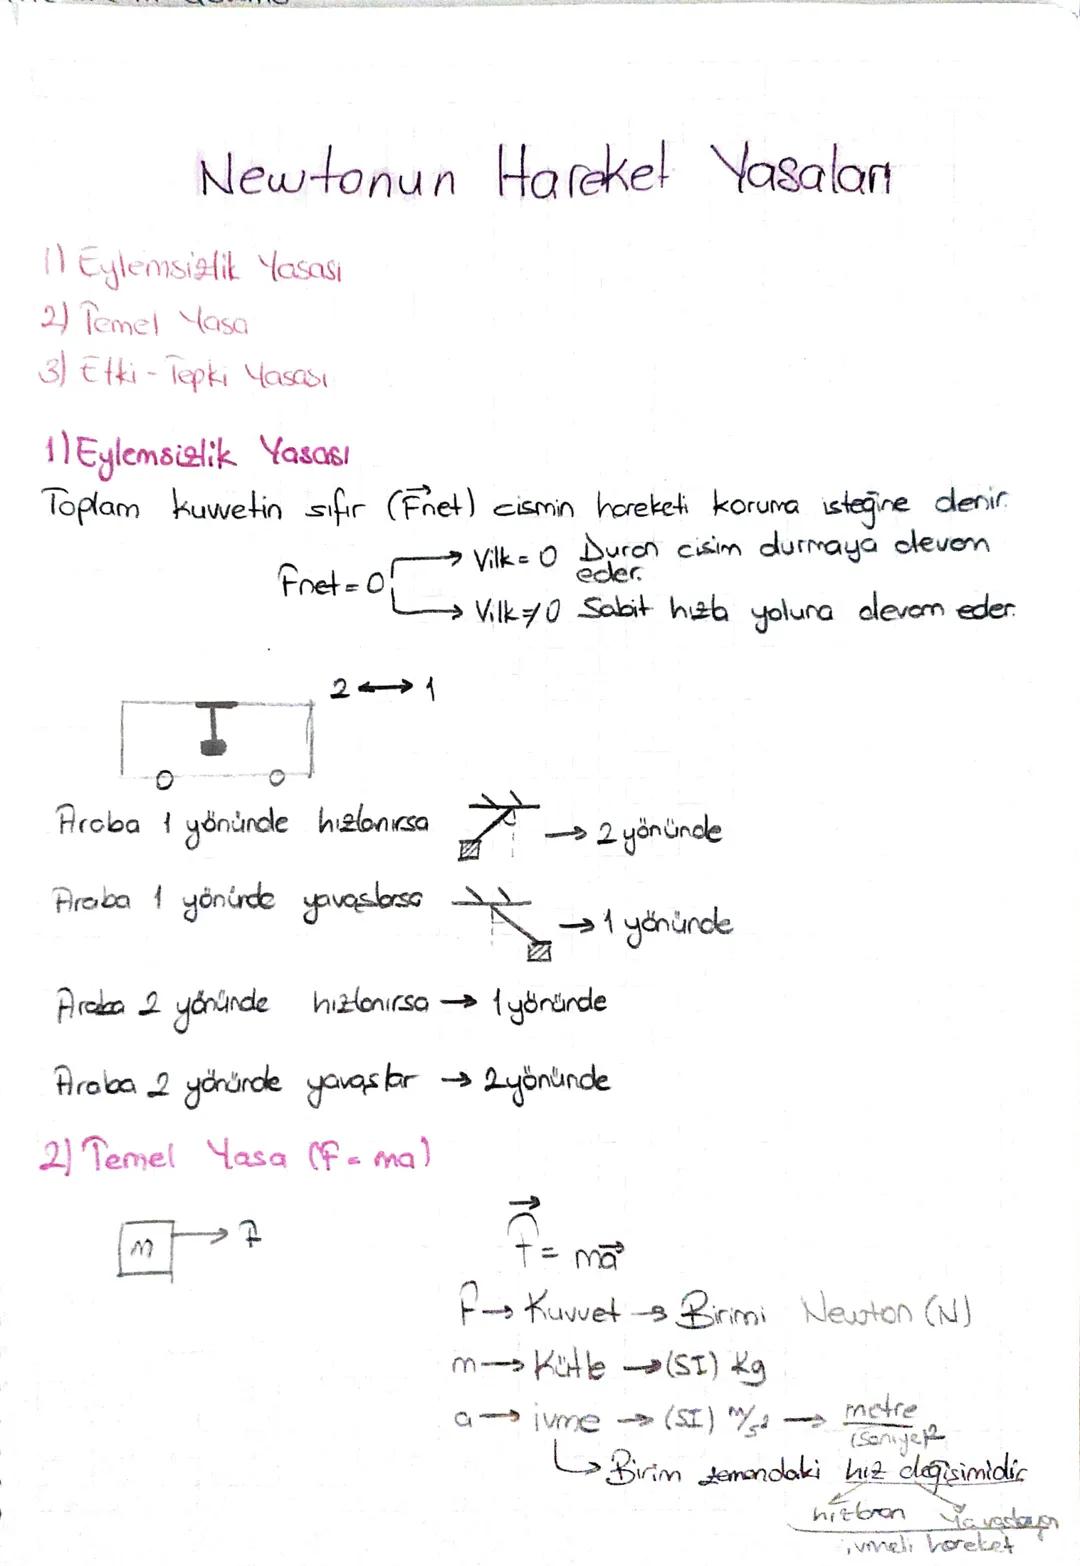 Newtonun Hareket Yasaları
1) Eylemsizlik Yasası
2) Temel Yasa
3) Etki - Tepki Yasası
1) Eylemsizlik Yasası
Toplam kuvvetin sıfır (Fnet) cismin hareketi koruma isteğine denir.
Fnet = 0
→ Vilk = 0 Duran cisim durmaya devam
eder.
→ Vilk ≠ 0 Sabit hızla yoluna devam eder.
2 ↔ 1
Araba 1 yönünde hızlanırsa → 2 yönünde
Araba 1 yönünde yavaşlarsa → 1 yönünde
Araba 2 yönünde hızlanırsa → 1 yönünde
Araba 2 yönünde yavaşlar → 2 yönünde
2) Temel Yasa (F = ma)
m → F
F = ma
F → Kuvvet → Birimi Newton (N)
m → Kütle → (SI) Kg
a → ivme → (SI) m/s² → metre
(saniye)2
↳ Birim zamandaki hız değişimidir
hızlanan yavaşlayan
ivmeli hareket